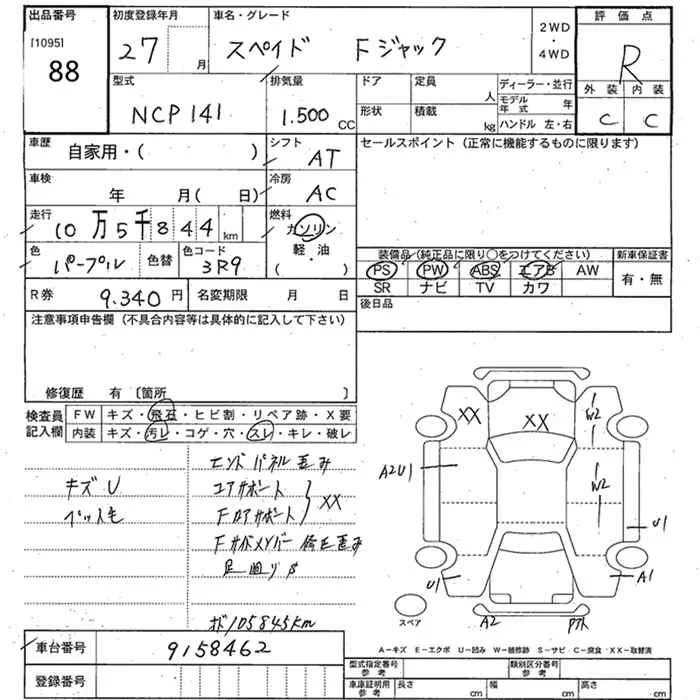 出品番号 初度登録年月 車名・グレード 2WD ・ 4WD 評価点
[1095] 88 27 月 スペイド Fジャック R
外装 内装
C C
型式 排気量 ドア 定員 人 ディーラー・並行
NCP141 1.500 CC 形状 積載 kg モデル年式 年
ハンドル 左・右
車歴 自家用・( ) シフト AT セールスポイント (正常に機能するものに限ります)
車検 年 月( 日) 冷房 AC
走行 10万5千844 km 燃料 ガソリン 軽・油 ( )
色 パープル 色替 色コード 3R9
装備品 (純正品に限り○をつけてください) 新車保証書
PS PW ABS エアB AW 有・無
SR ナビ TV カワ
R券 9.340円 名変期限 月 日 後日品
注意事項申告欄 (不具合内容等は具体的に記入して下さい)
修復歴 有 〔箇所 〕
検査員記入欄 FW キズ・飛石・ヒビ割・リペア跡・X要
内装 キズ・汚レ・コゲ・穴・スレ・キレ・破レ
エンドパネル歪み
キズU コアサポート
XX
ペット毛 Fロアサポート
Fサイドメンバー 修正歪み
足廻りS
メーター105845km
XX XX W2
A2U1 W2 U1
U1 A1
スペア A2
A−キズ E−エクボ U−凹み W−補修跡 S−サビ C−腐食 XX−取替済
車台番号 9158462
登録番号
型式指定番号 参考 類別区分番号 参考
車庫証明用 参考 長さ cm 幅 cm 高さ cm